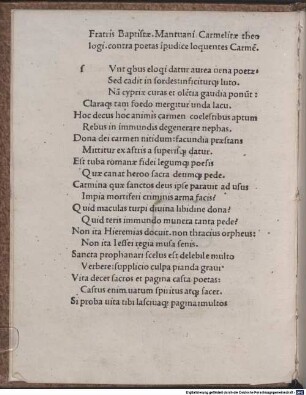 Fratris Baptistæ. Mantuani Carmelitæ theo
logi. contra poetas ĩpudice loquentes Carmẽ.
f Vnt qbus eloqi datur aurea uena poetæ:
Sed cadit in sordes: inficiturq; luto.
Nã cypriæ curas et olẽtia gaudia ponũt:
Claraq; tam foedo mergitur unda lacu.
Hoc decus hoc animis carmen coelestibus aptum
Rebus in immundis degenerare nephas.
Dona dei carmen nitidum: facundia præstans
Mittitur ex astris a superisq; datur.
Est tuba romanæ fidei legumq; poesis
Quæ canat heroo sacra deumq; pede.
Carmina quæ sanctos deus ipse parauit ad usus
Impia mortiferi criminis arma facis?
Quid maculas turpi diuina libidine dona?
Quid teris immundo munera tanta pede?
Non ita Hieremias docuit. non thracius orpheus:
Non ita Iessei regia musa senis.
Sancta prophanari scelus est delebile multo
Verbere: supplicio culpa pianda graui.
Vita decet sacros et pagina casta poetas:
Castus enim uatum spiritus atq; sacer.
Si proba uita tibi lasciuaq; pagina: multos